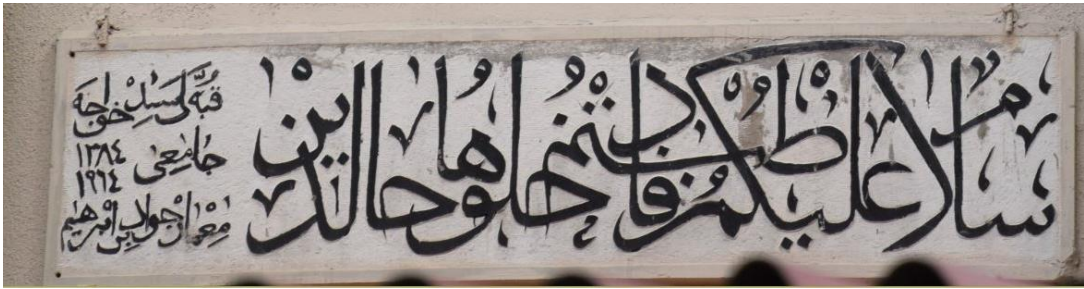 سلام عليكم طبتم فادخلوها خالدين
قبه خواجه
جامعى
١٣٨٤
١٩٦٤
معمار جواد بن ابرهيم